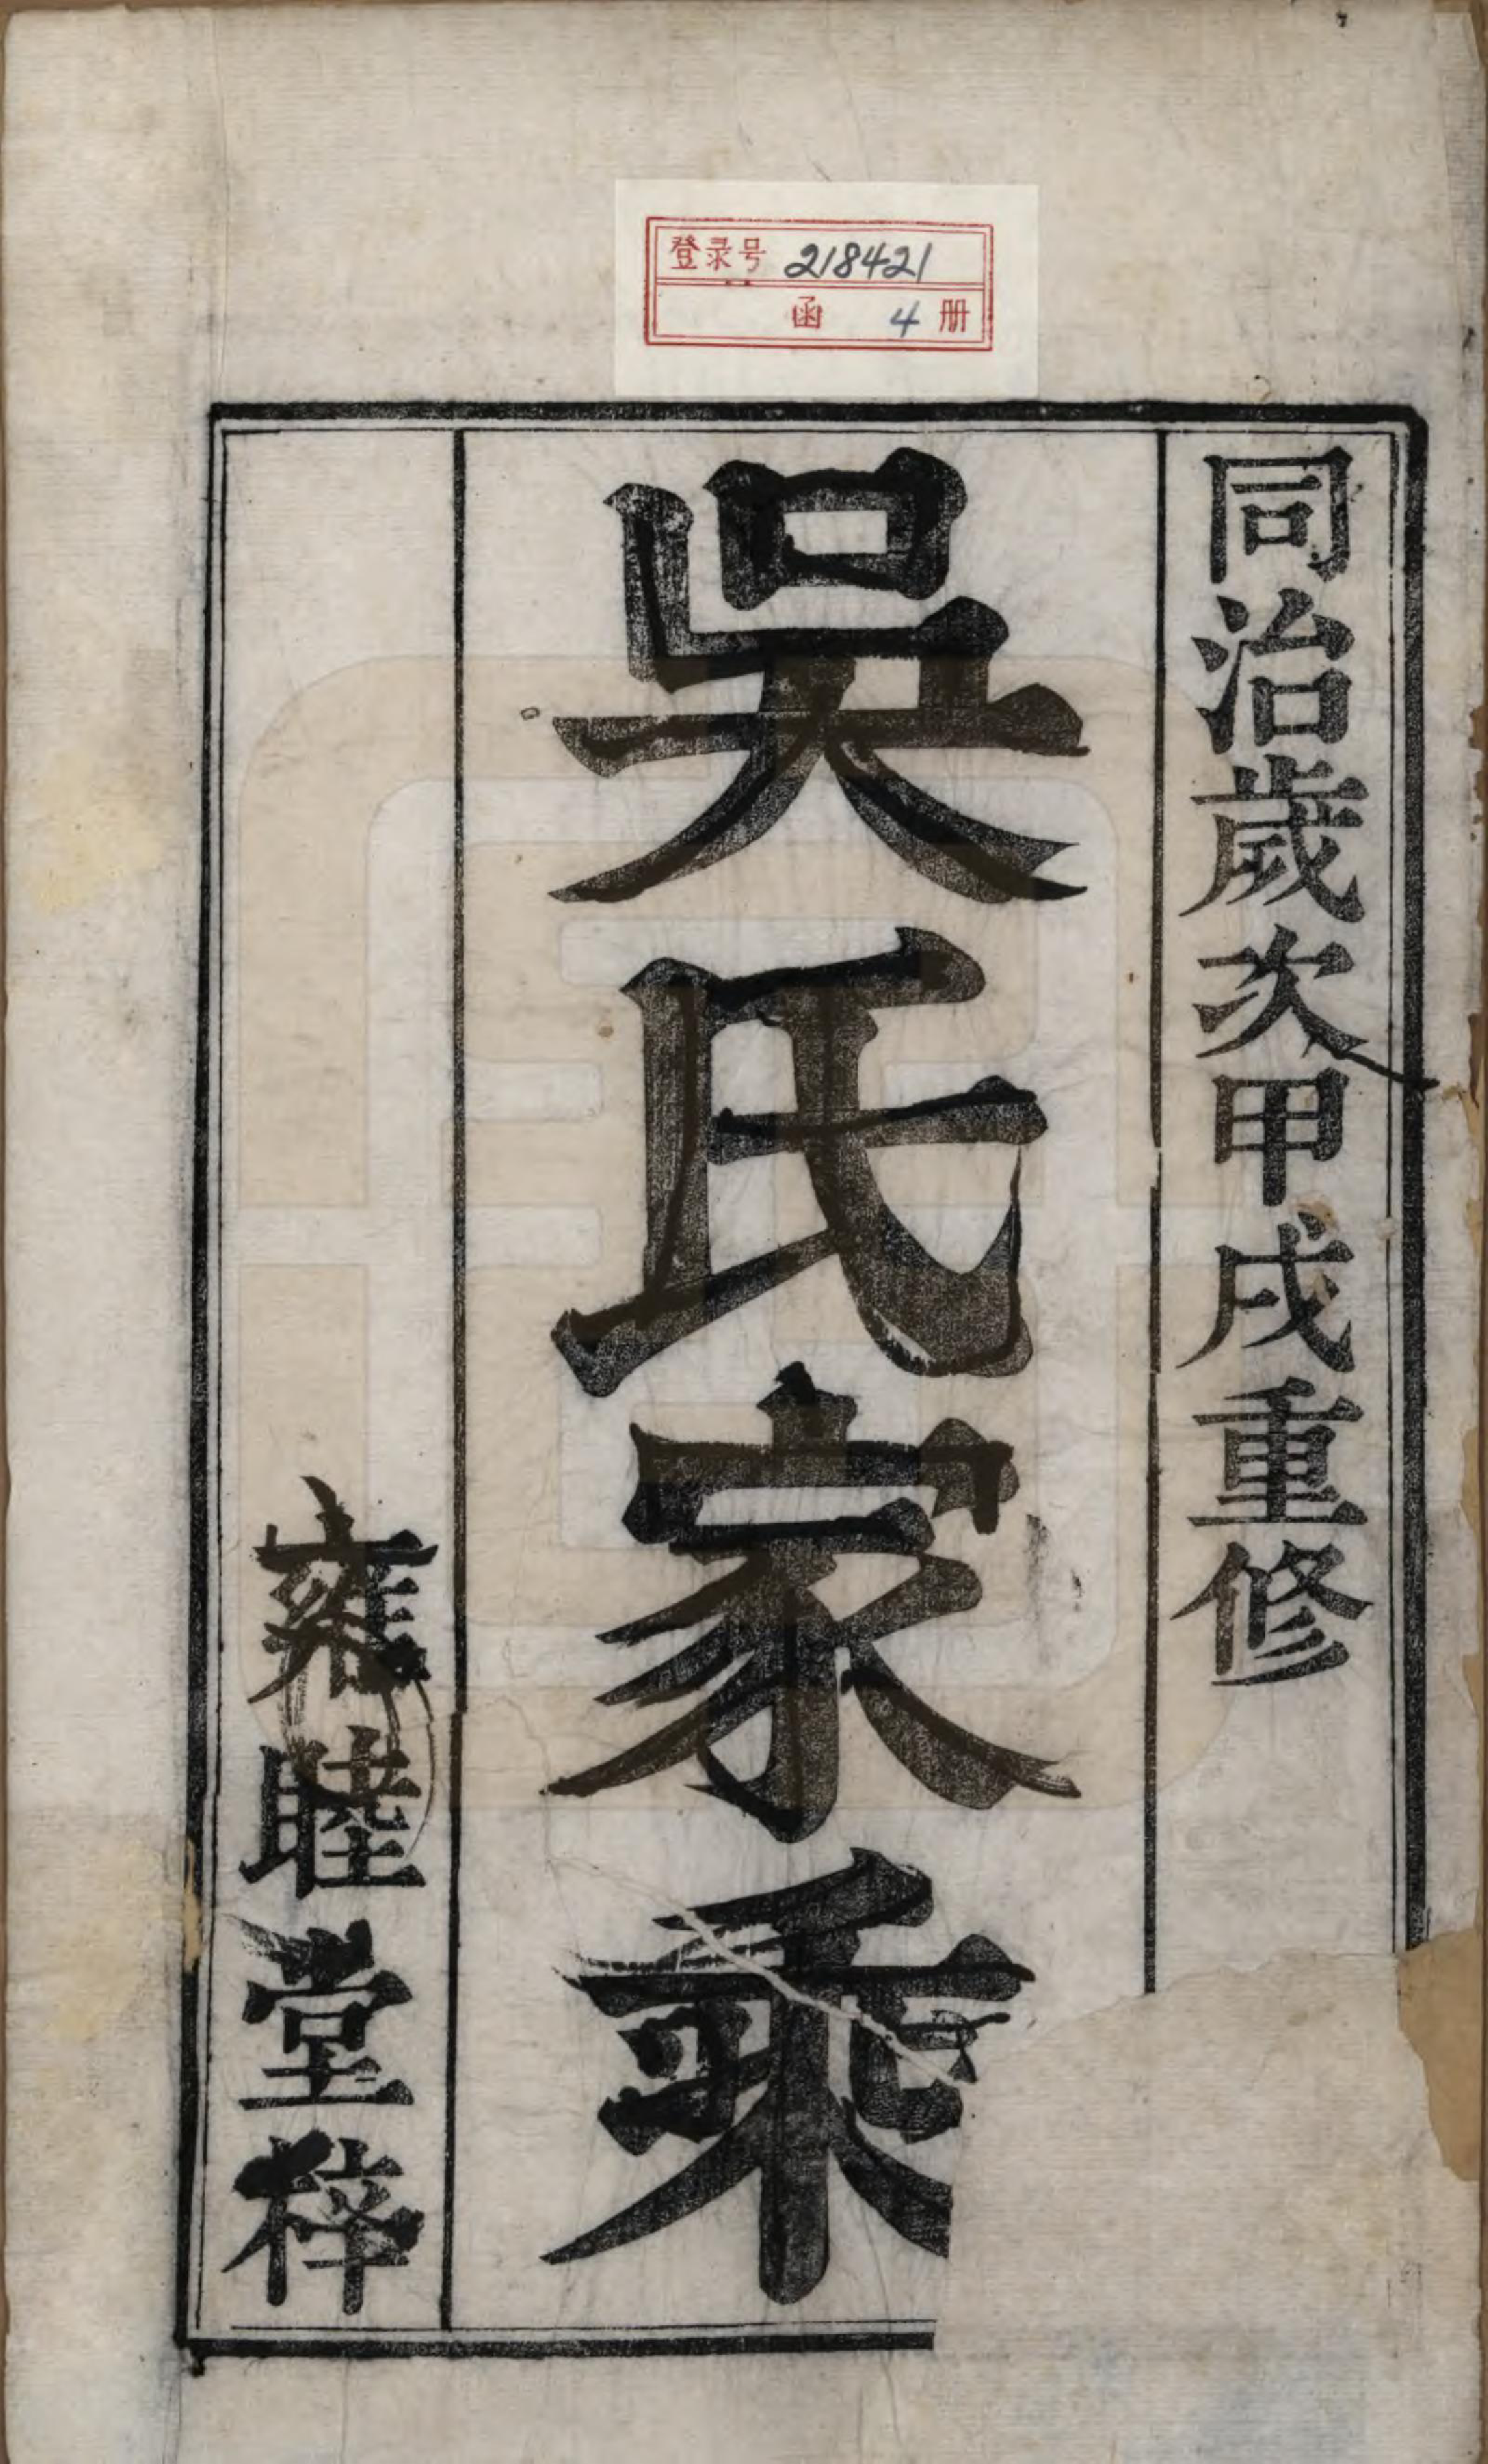 登录号 218421
函 4 册
同治歲次甲戌重修
吳氏家乘
雍睦堂梓